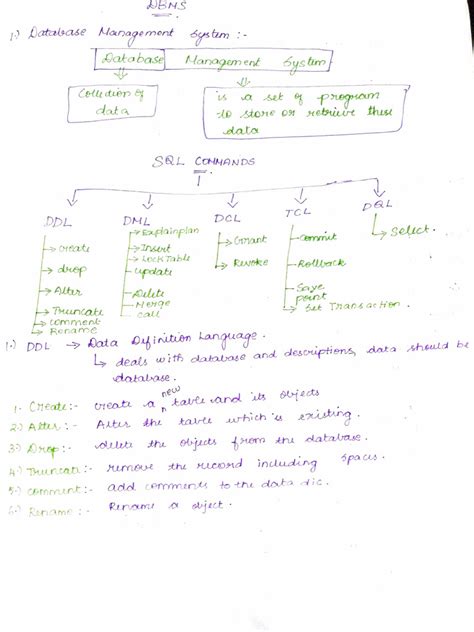 DBMS
1.) Database Management System :-
Database Management System
Collection of data
is a set of program
to store or retrieve these
data
SQL COMMANDS
DDL
create
drop
Alter
Truncate
comment
Rename
DML
Explainplan
Insert
Lock Table
update
Delete
Merge
call
DCL
Grant
Revoke
TCL
Commit
Rollback
Save
point
Set Transaction.
DQL
Select.
1.) DDL → Data Definition Language.
deals with database and descriptions, data should be
database.
1- Create:- create a new table and its objects
2.) Alter:- Alter the table which is existing.
3.) Drop:- delete the objects from the database.
4.) Truncate:- remove the record including spaces.
5.) comment:- add comments to the data dic.
6.) Rename:- Rename a object.